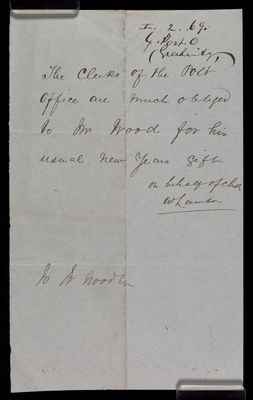 1. 2. 69.
G. Post. O
(Gratuity)
The Clerks of the Post
Office are much obliged
to Mr Wood for his
usual New Years gift
on behalf of